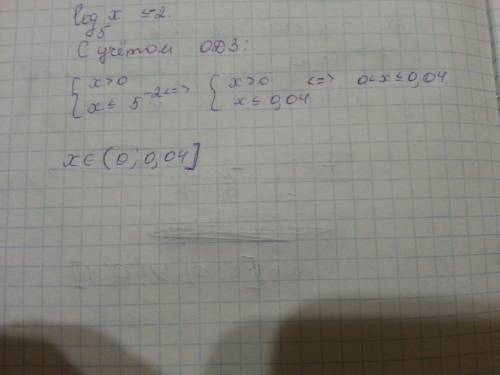 log₅ x ≤ -2.
С учётом ОДЗ:
{ x>0 x ≤ 5⁻² <=> { x>0 x ≤ 0,04 <=> 0<x≤0,04
x∈(0; 0,04]